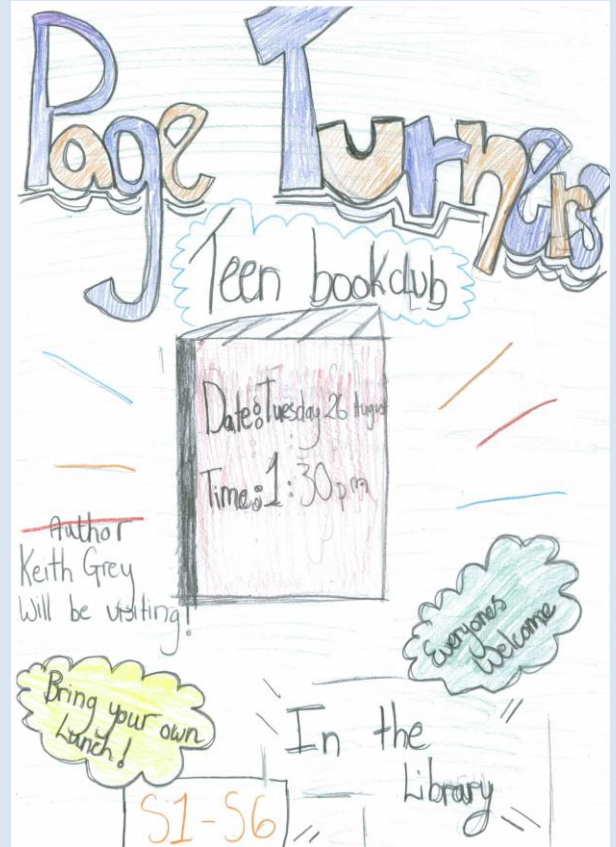 Page Turners
Teen bookclub
Date: Tuesday 26 August
Time: 1:30pm
Author
Keith Grey
Will be visiting!
Everyones
Welcome
Bring your own
Lunch!
In the
Library
S1-S6